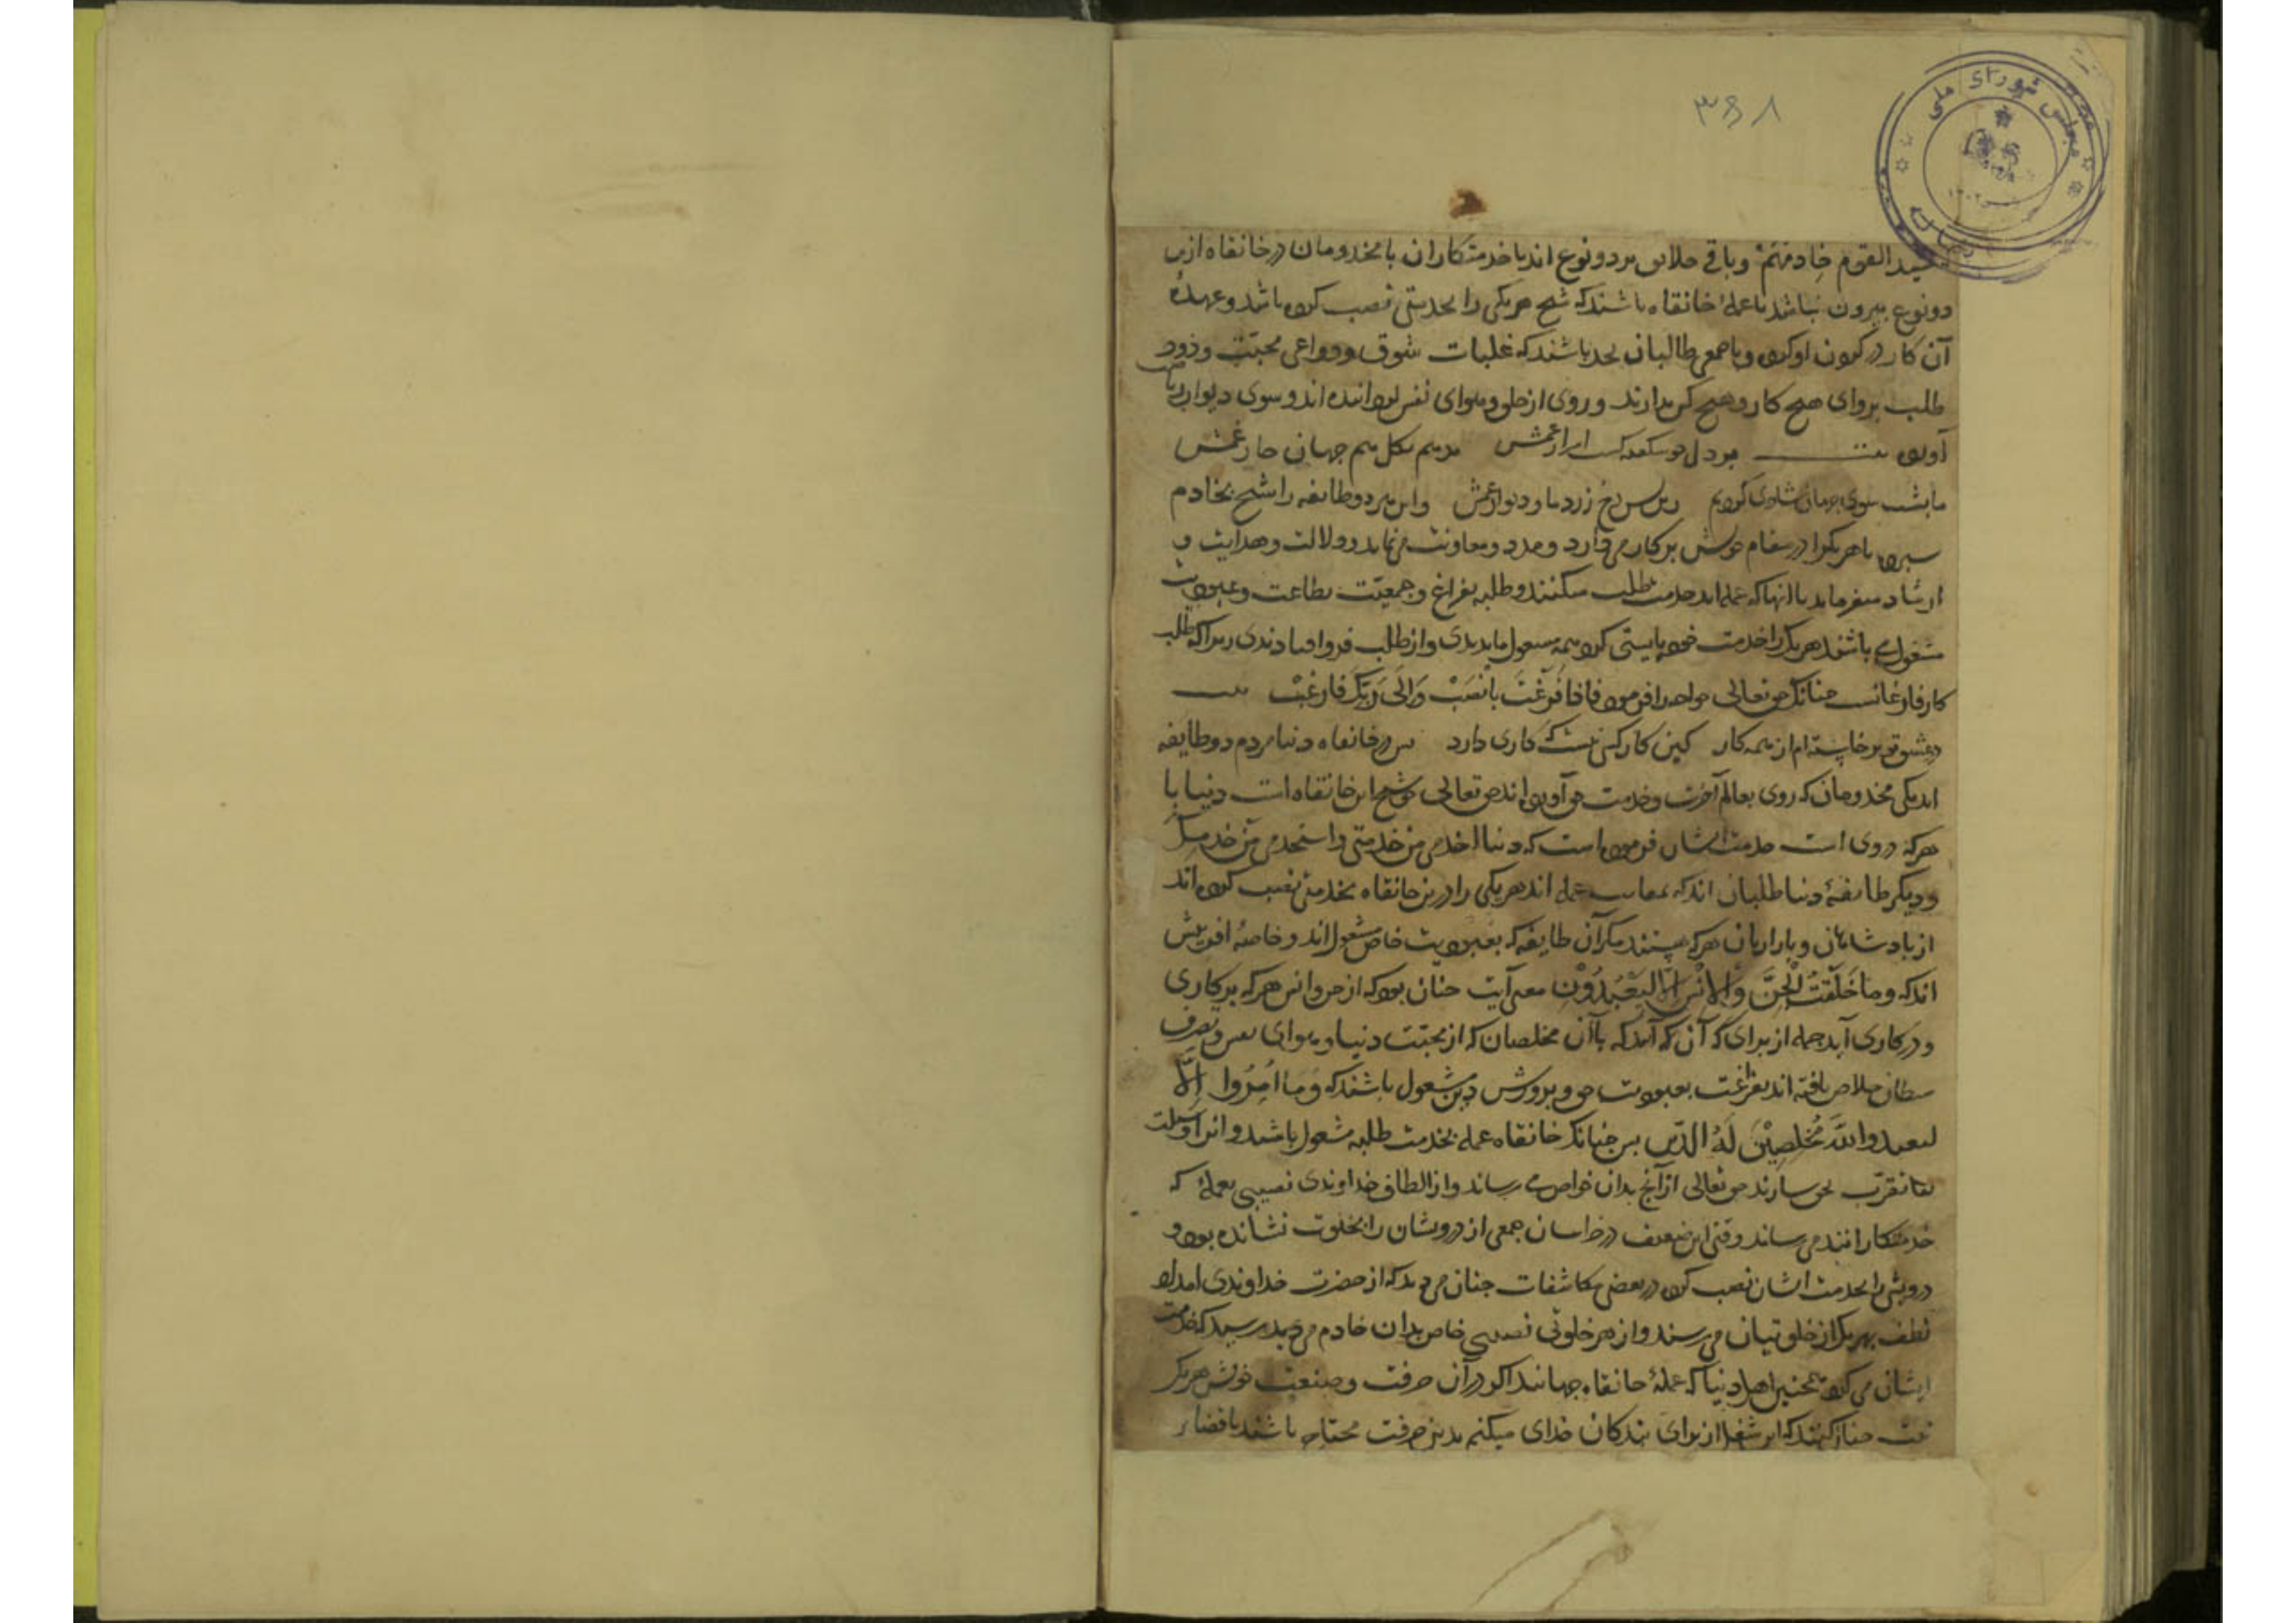 ۳۶۸۱
مجلس شورای ملی
سید القوم خادمهم و باقی خلایق بر دو نوع اند یا خدمتکاران یا مخدومان در خانقاه ازین
دو نوع بیرون نباشد یا عملهٔ خانقاه باشند که شیخ هر یکی را بخدمتی نصب کرده باشد و عهدهٔ
آن کار در گردن او کرده و یا جمعی طالبان باشند که غلبات شوق و دواعی محبت و درد
طلب پروای هیچ کار و هیچ کس ندارند و روی از خلق و هوای نفس بگردانیده اند و سوی دیوار ریاضت
آورده بیت بر دل غمش مرهم همه گل همه جهان خار غمش
ما پشت سوی جهان شادی کردیم زین پس رخ زرد ما و دیوار غمش و این هر دو طایفه را شیخ بخادم
سپرده تا هر یک را در مقام خویش بر کار می دارد و مدد و معاونت می نماید و دلالت و هدایت و
ارشاد میفرماید تا آنها که عمله اند خدمت طلبه میکنند و طلبه بفراغ و جمعیت بطاعت و عبودیت
مشغول می باشند هر یک را خدمت خود بایستی کرد همه مشغول ماندندی و از طلب فرو افتادندی زیرا که طلب
کار فارغانست چنانک حق تعالی خواجه را فرمود فاذا فرغت فانصب و الی ربک فارغب بیت
در عشق تو برخاسته ام از همه کار کین کار کسی نیست که کاری دارد پس در خانقاه دنیا مردم دو طایفه
اند یکی مخدومان که روی بعالم آخرت و خدمت حق آورده اند حق تعالی که شیخ این خانقاه است دنیا با
هر که دروی است خدمت ایشان فرموده است که دنیا اخدمی من خدمنی و استخدمی من خدمک
و دیگر طایفهٔ دنیا طلبان اند که بمثابت عمله اند هر یکی را درین خانقاه بخدمتی نصب کرده اند
از پادشاهان و بازاریان هر که هستند مگر آن طایفه که بعبودیت خاص مشغول اند و خاصهٔ آفرینش
اند که و ما خلقت الجن و الانس الا لیعبدون معنی آیت چنان بود که از جن و انس هر که بر کاری
و در کاری آید جمله از برای که آن که آمد که تا آن مخلصان که از محبت دنیا و هوای نفس و تصرف
شیطان خلاص یافته اند بفراغت بعبودیت حق و پرورش دین مشغول باشند که و ما امروا الا
لیعبدوا الله مخلصین له الدین پس چنانک خانقاه عمله بخدمت طلبه مشغول باشند و آنرا وسیلت
تقرب بحق سازند حق تعالی از آنچ بدان خواص می رساند و از الطاف خداوندی نصیبی بعمله که
خدمتکارانند می رساند وقتی این ضعیف در خراسان جمعی از درویشان را بخلوت نشانده بود و
درویشی را بخدمت ایشان نصب کرده در بعضی مکاشفات چنان می دید که از حضرت خداوندی امداد
لطف بهر یک از خلوتیان می رسند و از هر خلوتی نصیبی خاص بدان خادم می رسید که خدمت
ایشان می کرد همچنین اهل دنیا که عملهٔ خانقاه جهانند اگر در آن حرفت و صنعت خویش هر یک
نیت چنان کنند که این شغل از برای بندگان خدای میکنم بدین حرفت محتاج باشند تا قضاء